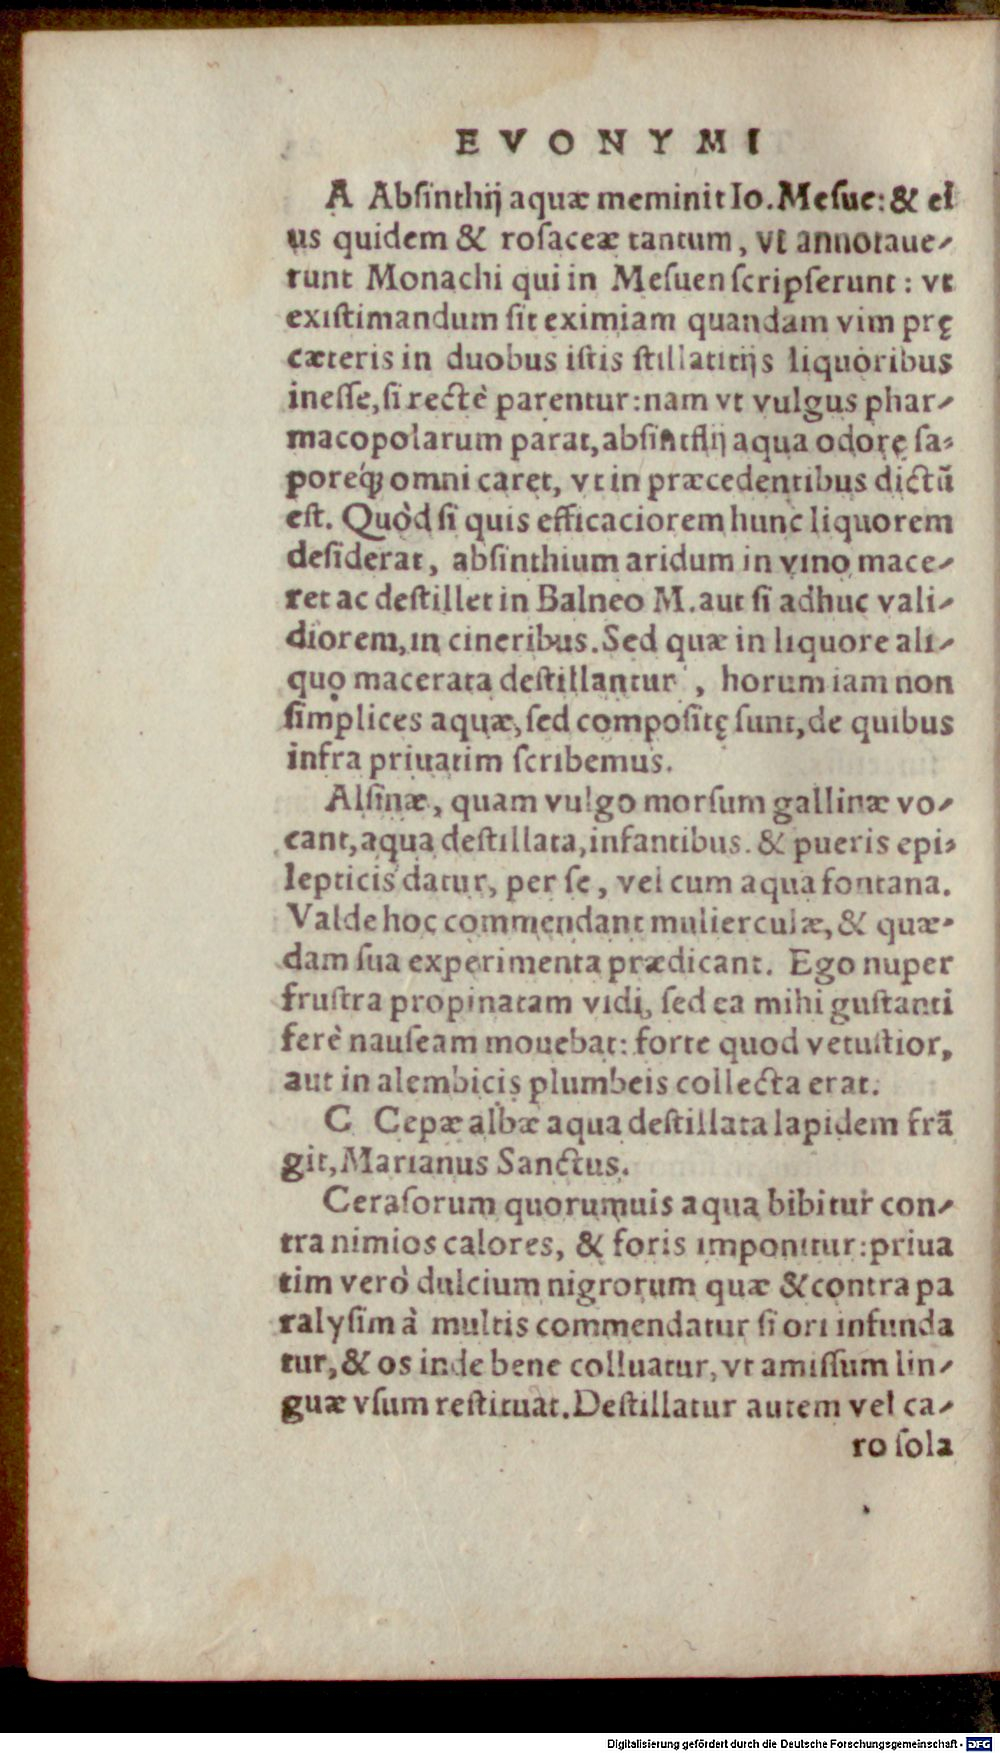 EVONYMI
A Abſinthij aquæ meminit Io. Meſue: & ei
us quidem & roſaceæ tantum, vt annotaue-
runt Monachi qui in Meſuen ſcripſerunt: vt
exiſtimandum ſit eximiam quandam vim prę
cæteris in duobus iſtis ſtillatitijs liquoribus
ineſſe, ſi rectè parentur: nam vt vulgus phar-
macopolarum parat, abſinthij aqua odorę ſa-
poreq́; omni caret, vt in præcedentibus dictũ
eſt. Quòd ſi quis efficaciorem hunc liquorem
deſiderat, abſinthium aridum in vino mace-
ret ac deſtillet in Balneo M. aut ſi adhuc vali-
diorem, in cineribus. Sed quæ in liquore ali-
quo macerata deſtillantur, horum iam non
ſimplices aquæ, ſed compoſitę ſunt, de quibus
infra priuatim ſcribemus.
Alſinæ, quam vulgo morſum gallinæ vo-
cant, aqua deſtillata, infantibus. & pueris epi-
lepticis datur, per ſe, vel cum aqua fontana.
Valde hoc commendant mulierculæ, & quæ-
dam ſua experimenta prædicant. Ego nuper
fruſtra propinatam vidi, ſed ea mihi guſtanti
ferè nauſeam mouebat: forte quod vetuſtior,
aut in alembicis plumbeis collecta erat.
C Cepæ albæ aqua deſtillata lapidem frã
git, Marianus Sanctus.
Ceraſorum quorumuis aqua bibitur con-
tra nimios calores, & foris imponitur: priua
tim verò dulcium nigrorum quæ & contra pa
ralyſim à multis commendatur ſi ori infunda
tur, & os inde bene colluatur, vt amiſſum lin-
guæ vſum reſtituat. Deſtillatur autem vel ca-
ro ſola
Digitalisierung gefördert durch die Deutsche Forschungsgemeinschaft - DFG